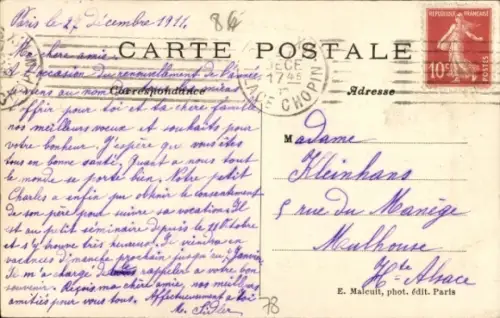 Paris le 27 décembre 1911.
84
Ma chère amie.
CARTE POSTALE
RÉPUBLIQUE FRANÇAISE
10
DECE
17
PLACE CHOPIN
A l'occasion du renouvellement de l'année
je viens au nom de
Correspondance
Adresse
offrir pour toi et ta chère famille
nos meilleurs vœux et souhaits pour
votre bonheur. J'espère que vous êtes
tous en bonne santé, Quant à nous tout
le monde se porte bien. Notre petit
Charles a enfin pu obtenir le consentement
de son père pour suivre sa vocation. Il
est au petit séminaire depuis le 11 Octobre
et s'y trouve très heureux. Il viendra en
vacances dimanche prochain jusqu'au 3 Janvier
Il m'a chargé de le rappeler à votre bon
souvenir. Reçois ma chère amie, nos meilleures
amitiés pour vous tous. Affectueusement à toi
Madame
Kleinhans
5 rue du Manège
Mulhouse
Hte Alsace
E. Malcuit, phot. édit. Paris
78